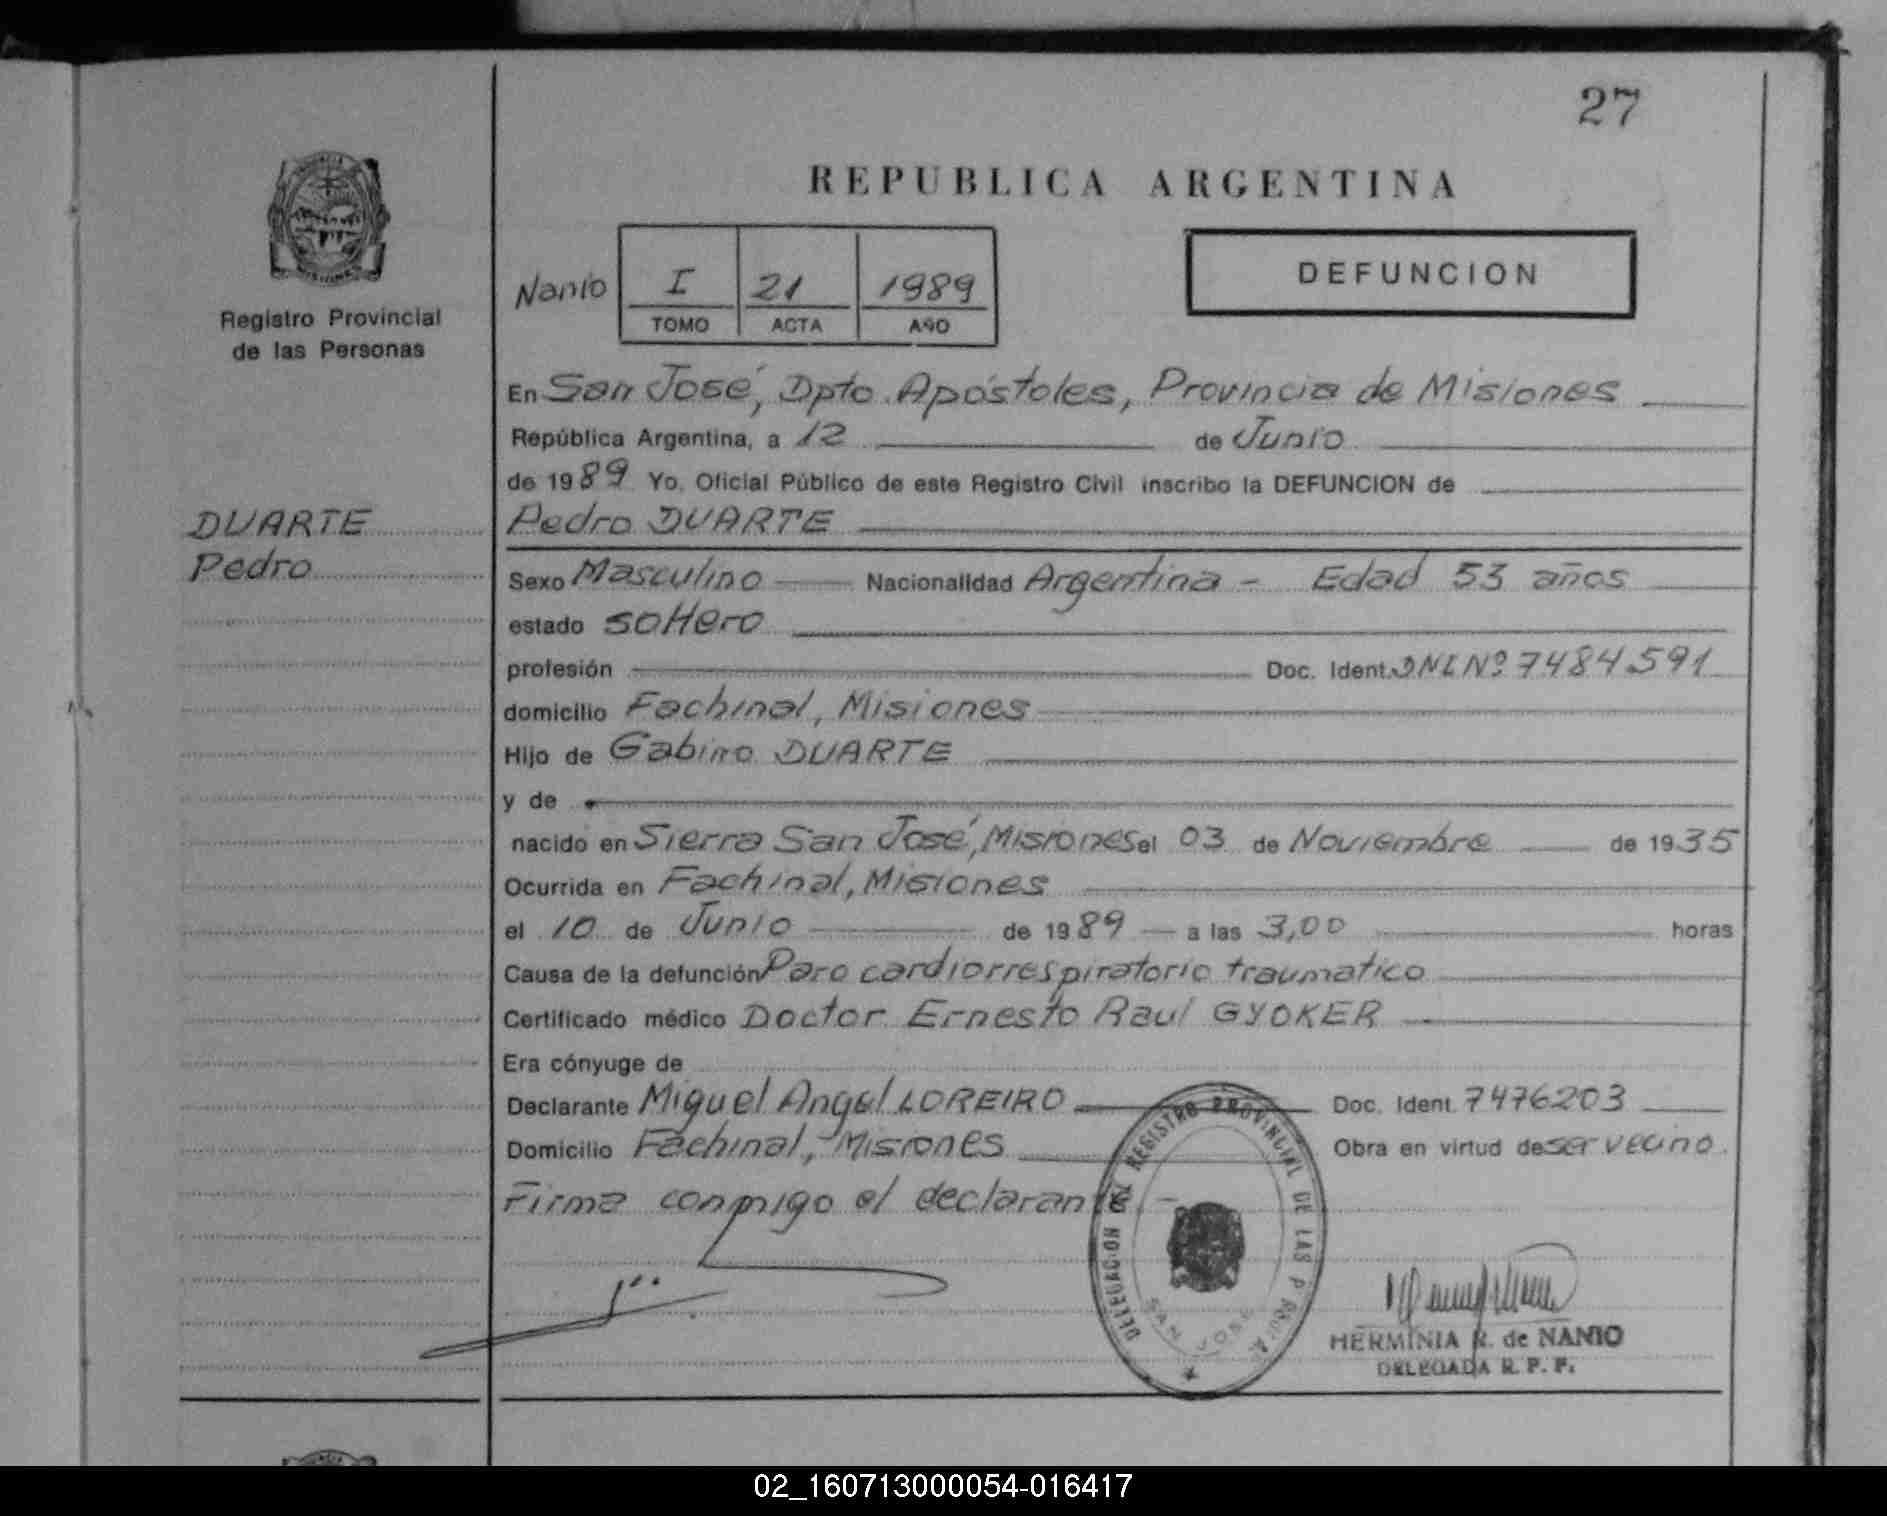 27
REPUBLICA ARGENTINA
Registro Provincial
de las Personas
Nanio I 21 1989
TOMO ACTA AÑO
DEFUNCION
En San José, Dpto. Apóstoles, Provincia de Misiones
República Argentina, a 12 de Junio
de 1989 Yo, Oficial Público de este Registro Civil inscribo la DEFUNCION de
DUARTE
Pedro
Pedro DUARTE
Sexo Masculino Nacionalidad Argentina - Edad 53 años
estado soltero
profesión Doc. Ident. DNI Nº 7484591
domicilio Fachinal, Misiones
Hijo de Gabino DUARTE
y de
nacido en Sierra San José, Misiones el 03 de Noviembre de 1935
Ocurrida en Fachinal, Misiones
el 10 de Junio de 1989 a las 3,00 horas
Causa de la defunción Paro cardiorrespiratorio traumatico
Certificado médico Doctor Ernesto Raul GYOKER
Era cónyuge de
Declarante Miguel Angel LOREIRO Doc. Ident. 7476203
Domicilio Fachinal, Misiones Obra en virtud de ser vecino.
Firma conmigo el declarante -
DELEGACION DEL REGISTRO PROVINCIAL DE LAS
SAN JOSE
HERMINIA R. de NANIO
DELEGADA R. P. P.
02_160713000054-016417